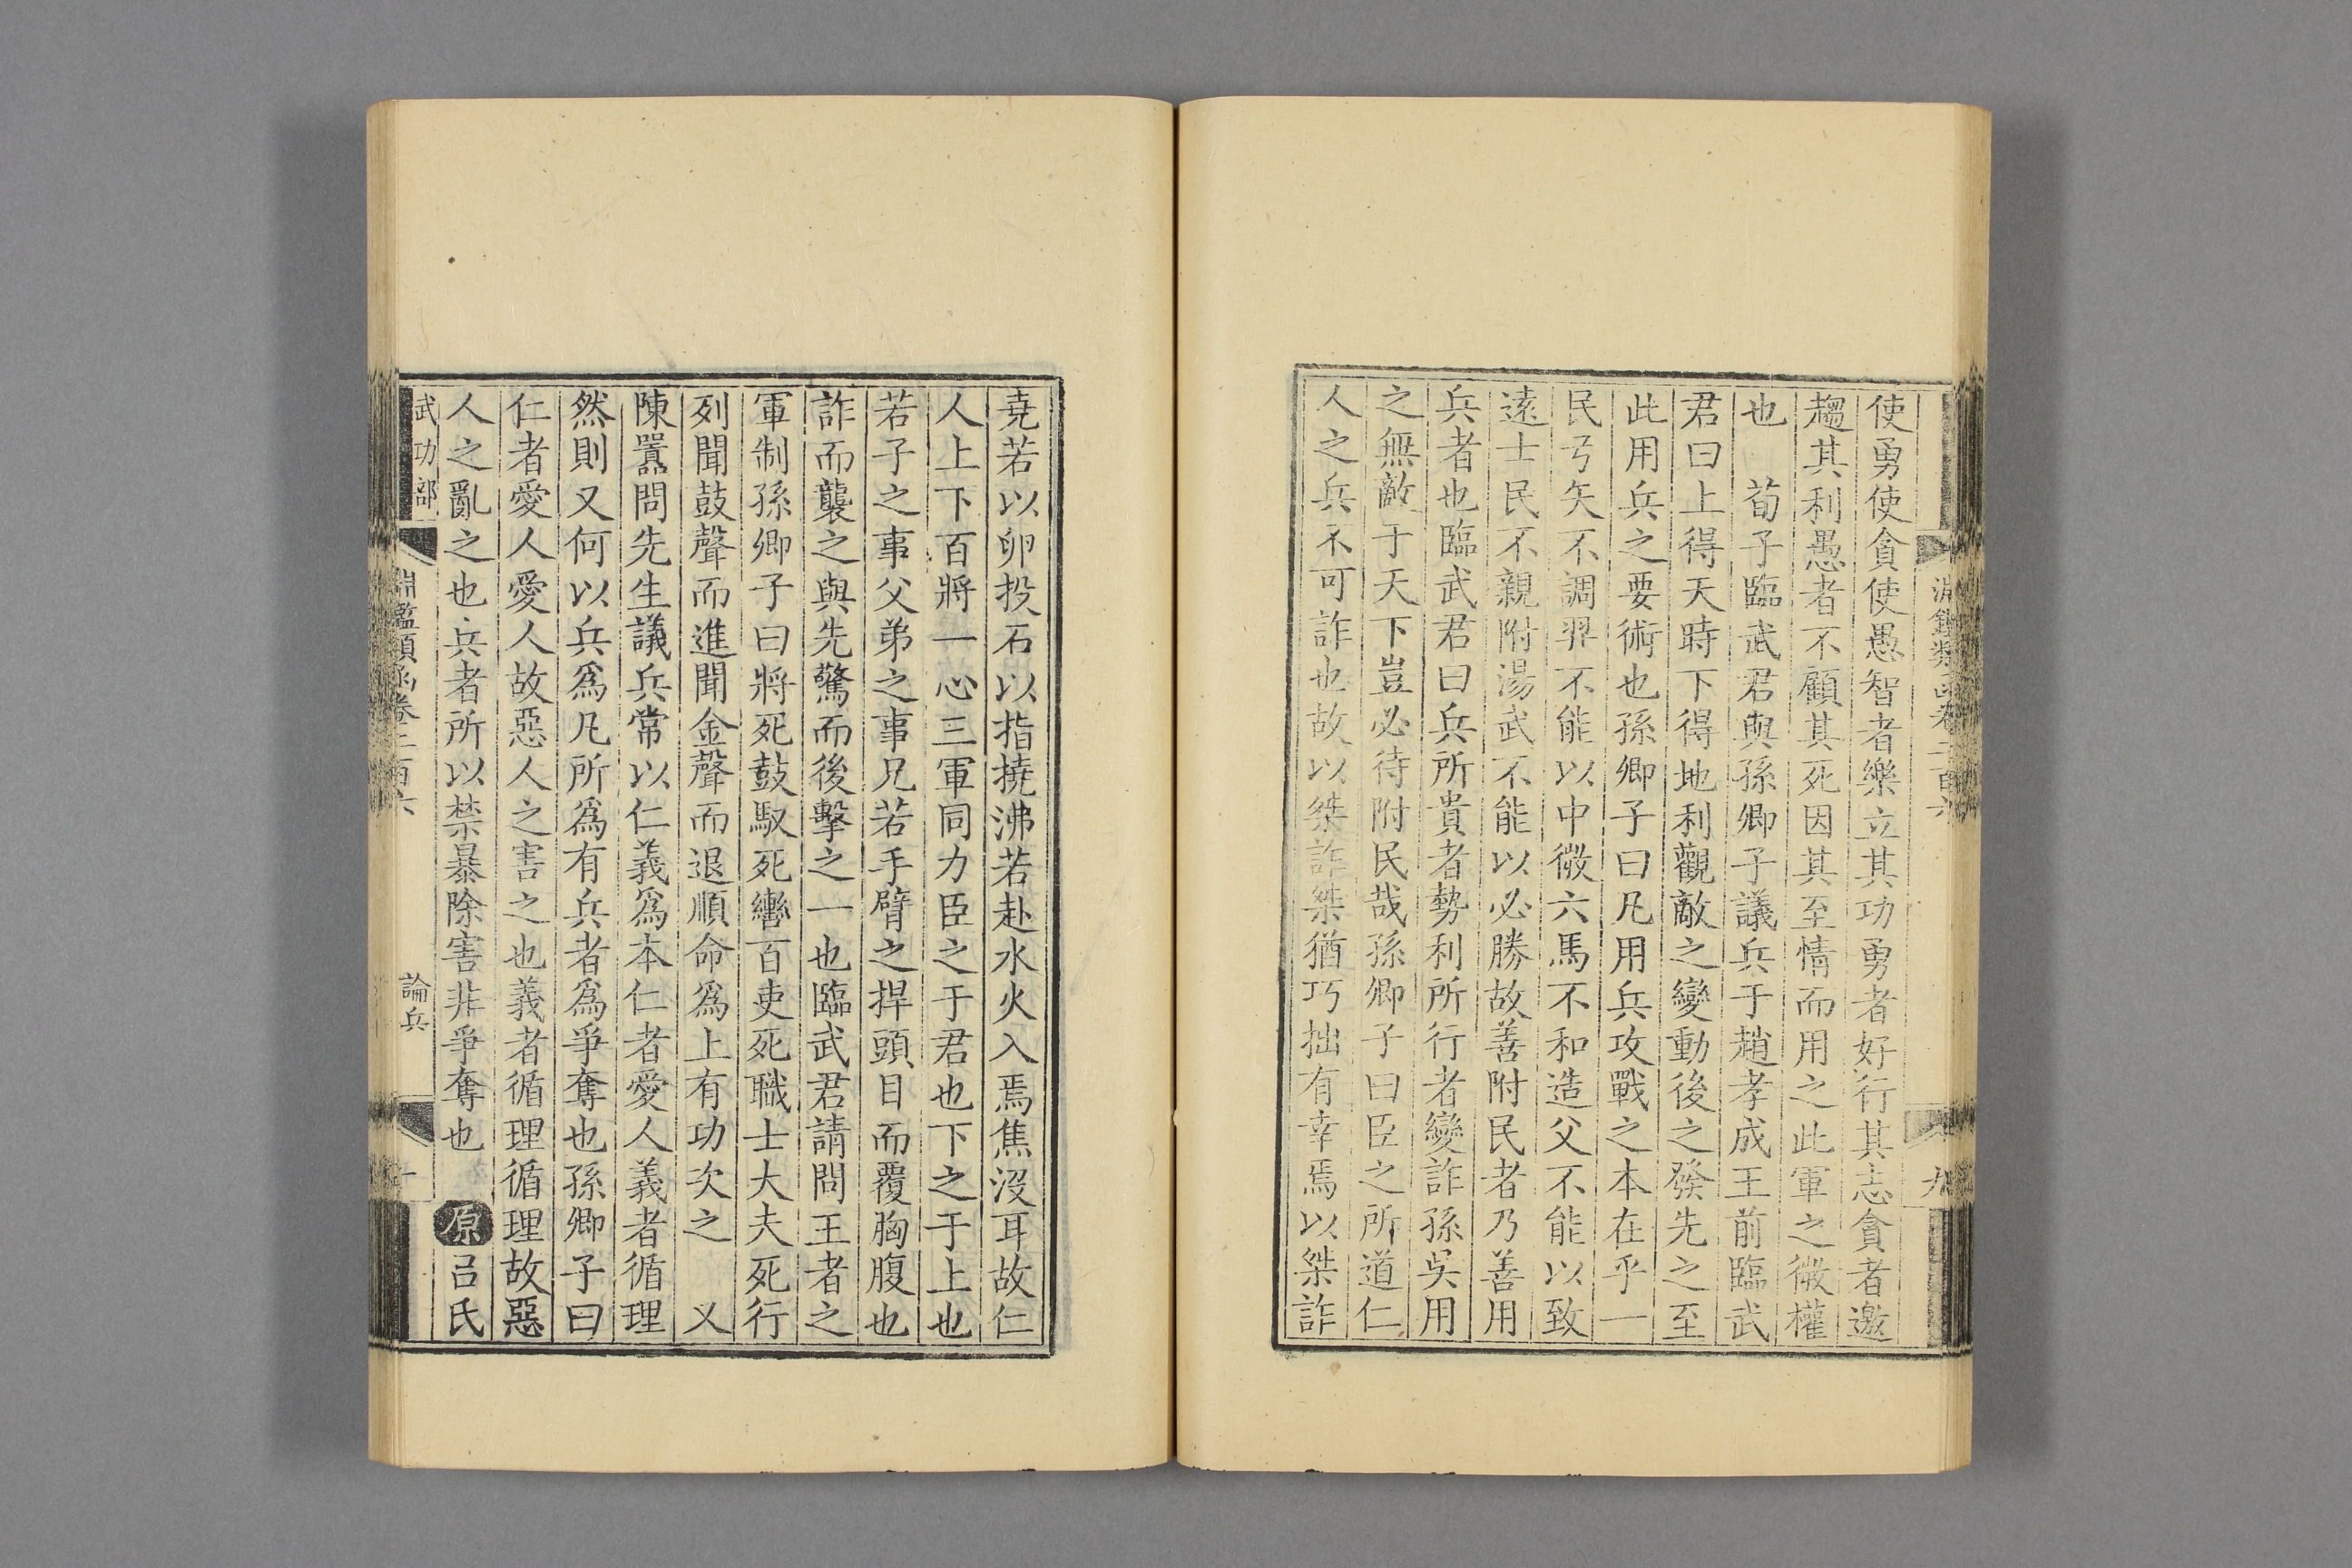 淵鑑類函卷二百六
九
使勇使貪使愚智者樂立其功勇者好行其志貪者邀
趨其利愚者不顧其死因其至情而用之此軍之微權
也　荀子臨武君與孫卿子議兵于趙孝成王前臨武
君曰上得天時下得地利觀敵之變動後之發先之至
此用兵之要術也孫卿子曰凡用兵攻戰之本在乎一
民弓矢不調羿不能以中微六馬不和造父不能以致
遠士民不親附湯武不能以必勝故善附民者乃善用
兵者也臨武君曰兵所貴者勢利所行者變詐孫吳用
之無敵于天下豈必待附民哉孫卿子曰臣之所道仁
人之兵不可詐也故以桀詐桀猶巧拙有幸焉以桀詐
堯若以卵投石以指撓沸若赴水火入焉焦沒耳故仁
人上下百將一心三軍同力臣之于君也下之于上也
若子之事父弟之事兄若手臂之捍頭目而覆胸腹也
詐而襲之與先驚而後擊之一也臨武君請問王者之
軍制孫卿子曰將死鼓馭死轡百吏死職士大夫死行
列聞鼓聲而進聞金聲而退順命為上有功次之　又
陳囂問先生議兵常以仁義為本仁者愛人義者循理
然則又何以兵為凡所為有兵者為爭奪也孫卿子曰
仁者愛人愛人故惡人之害之也義者循理循理故惡
人之亂之也兵者所以禁暴除害非爭奪也　原呂氏
武功部
淵鑑類函卷二百六
論兵
十